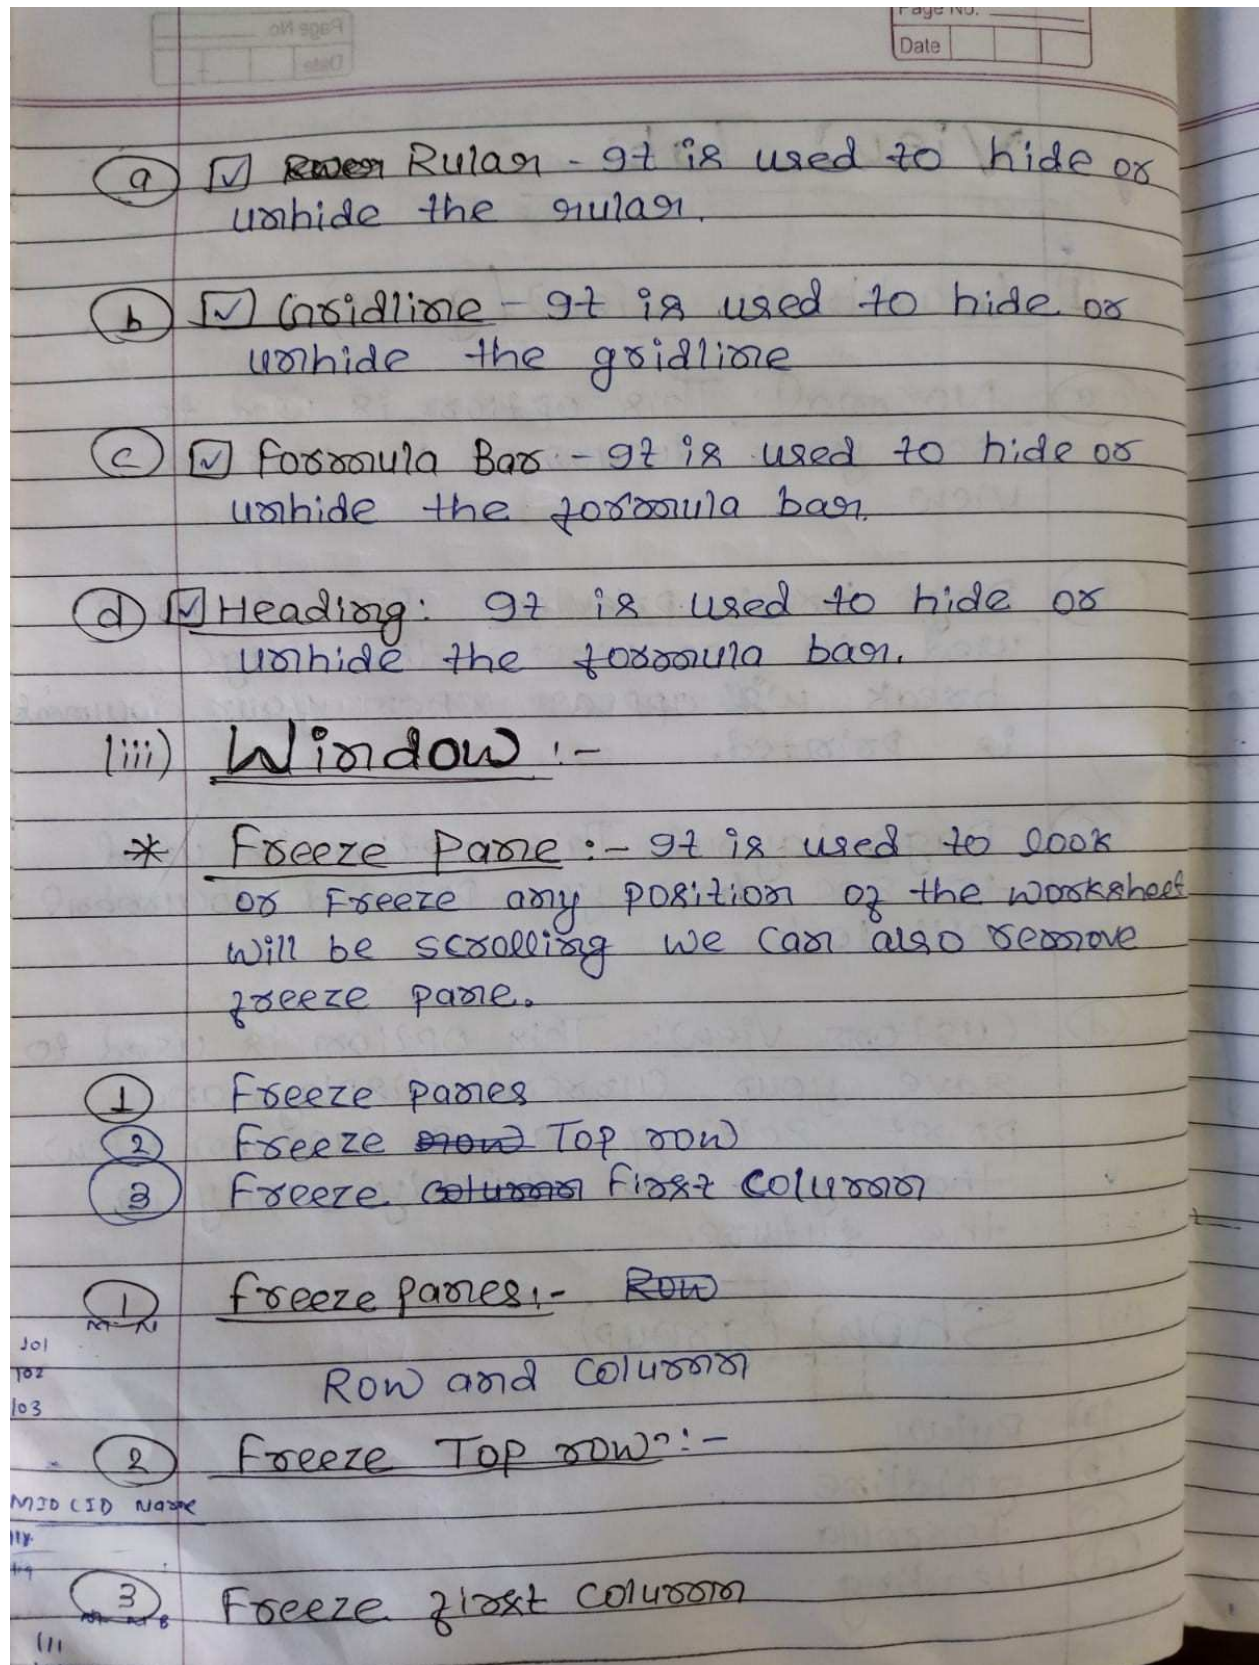 Page No.
Date
(a) ☑ Rular - It is used to hide or
unhide the rular.
(b) ☑ Gridline - It is used to hide or
unhide the gridline
(c) ☑ Formula Bar - It is used to hide or
unhide the formula bar.
(d) ☑ Heading: It is used to hide or
unhide the formula bar.
(iii) Window :-
* Freeze Pane :- It is used to look
or Freeze any position of the worksheet
will be scrolling we can also remove
freeze pane.
1 Freeze panes
2 Freeze row Top row
3 Freeze column First column
1 Freeze panes :- Row
101
102
103
Row and column
2 Freeze Top row :-
MID CID Name
3 Freeze first column